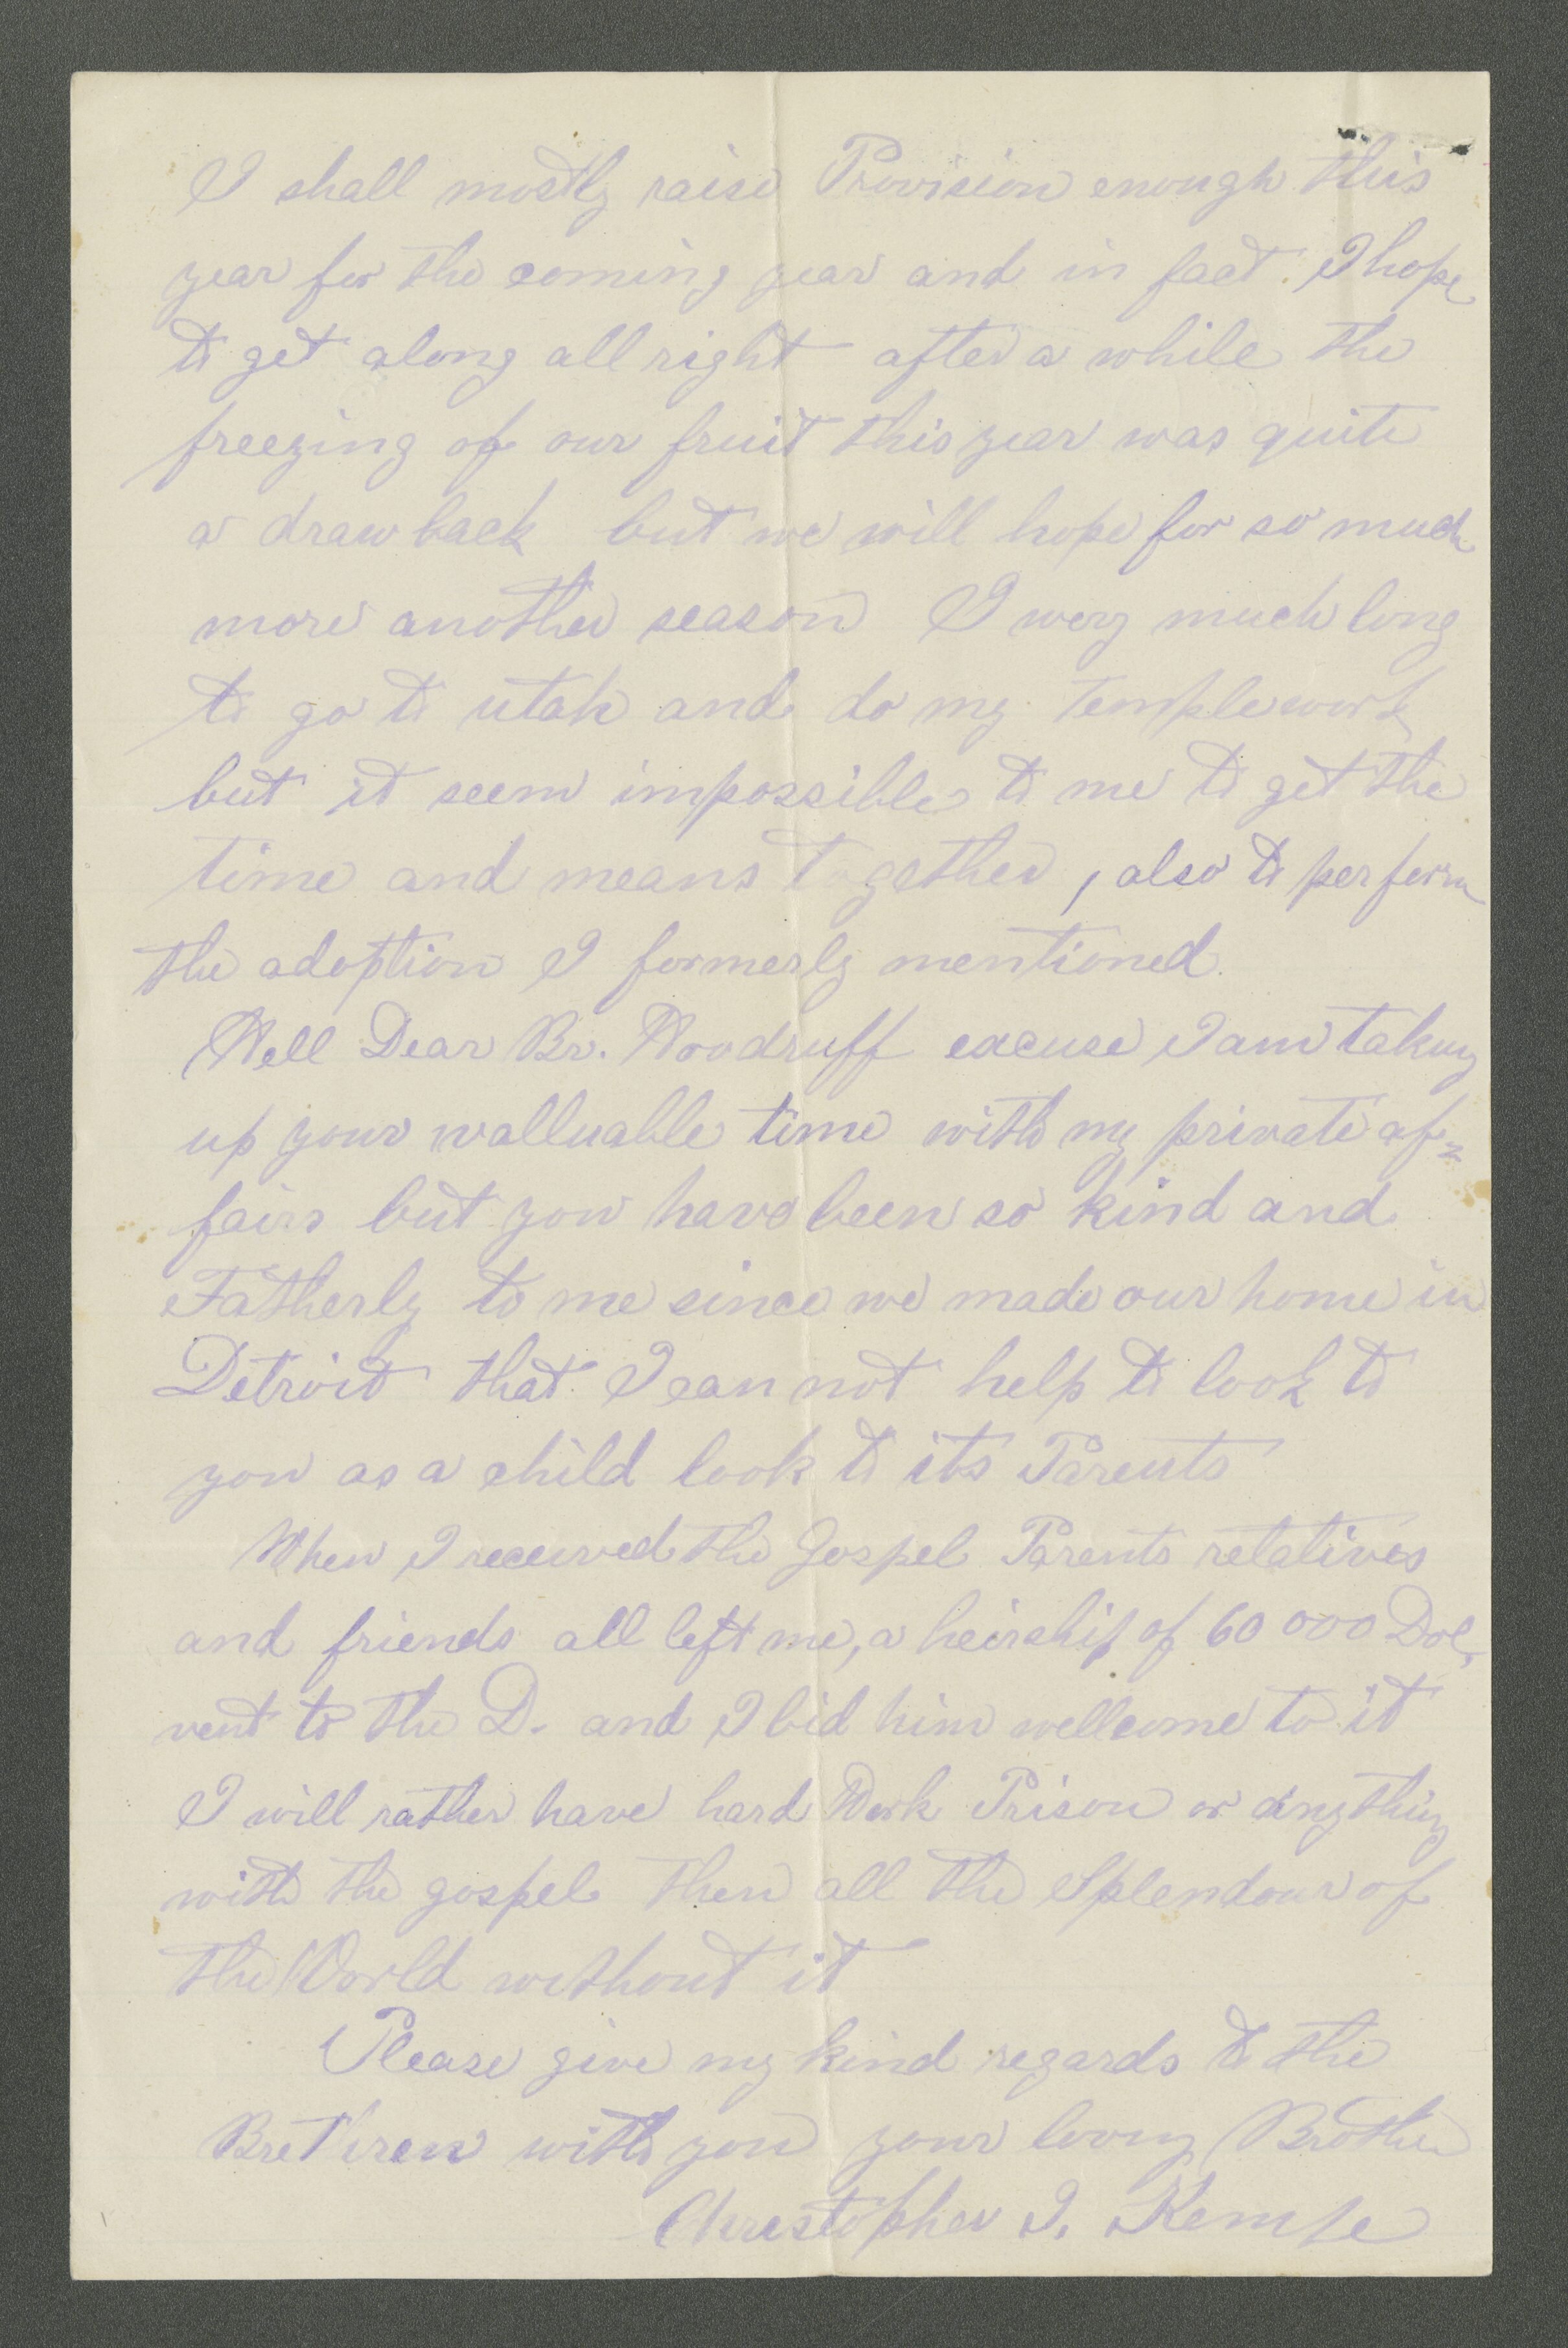 I shall mostly raise Provision enough this
year for the coming year and in fact I hope
to get along all right after a while the
freezing of our fruit this year was quite
a draw back but we will hope for so much
more another season I wery much long
to go to utah and do my Temple work
but it seem impossible to me to get the
time and means together, also to perform
the adoption I formerly mentioned.
Well Dear Br. Woodruff excuse I am taking
up your walluable time with my private af=
fairs but you have been so kind and
Fatherly to me since we made our home in
Detroit that I can not help to look to
you as a child look to its Parents
When I received the Gospel Parents relatives
and friends all left me, a heirship of 60 000 Dol,
vent to the D. and I bid him wellcome to it
I will rather have hard Work Prison or anything
with the gospel then all the Splendour of
the World without it
Please give my kind regards to the
Brethren with you your loving Brother
Christopher J. Kempe